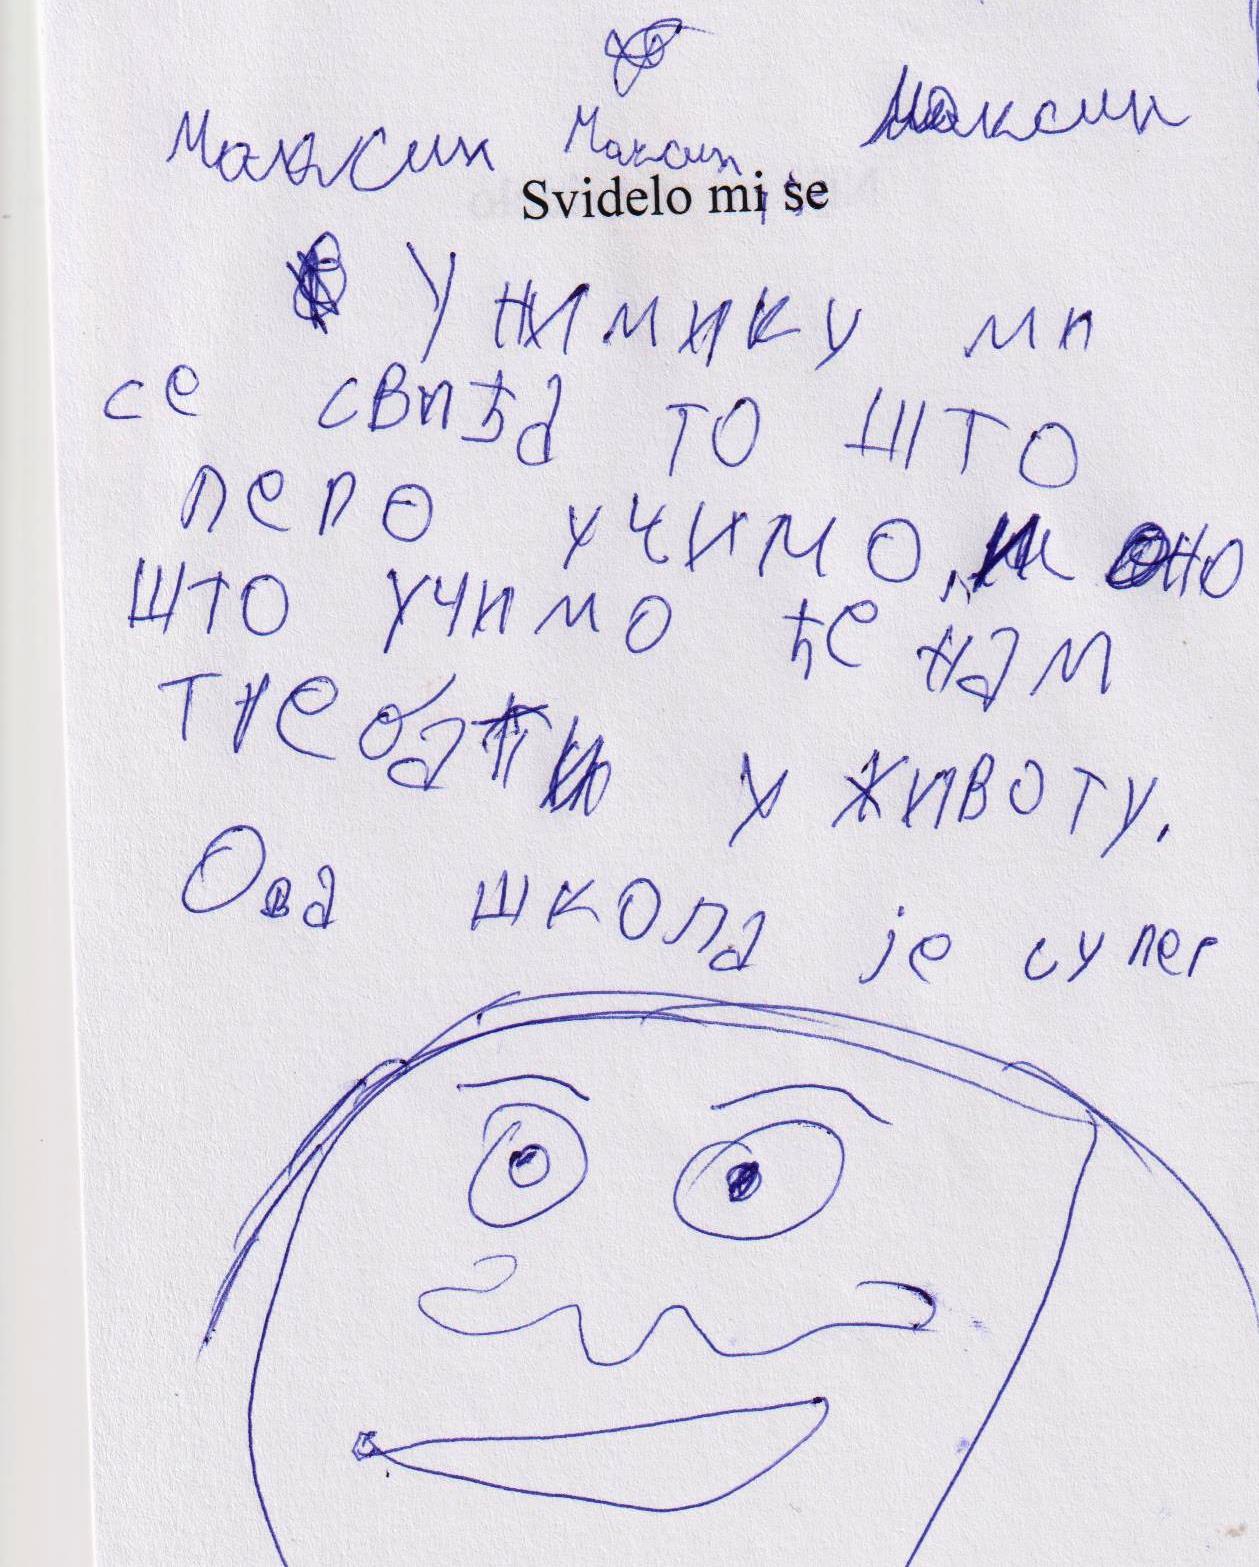 Максим Максим Максим
Svidelo mi se
У НИМИКУ МИ
се свиђа то што
лепо учимо, и оно
што учимо ће нам
требати у животу.
Ова школа је супер